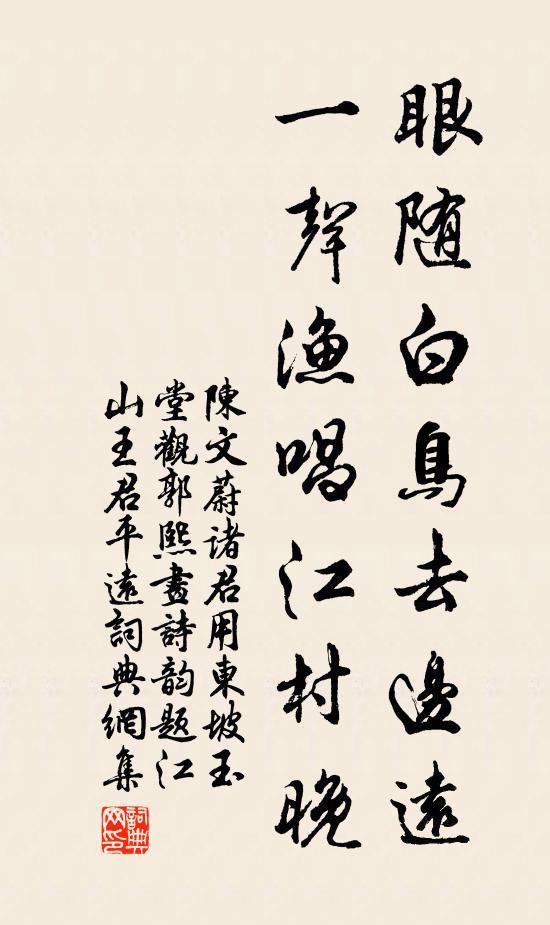 眼随白鳥去邊遠
一聲漁唱江村晚
陳文蔚諸君用東坡玉
堂觀郭熙畫詩韵题江
山王君平遠詞典網集
詞典网印